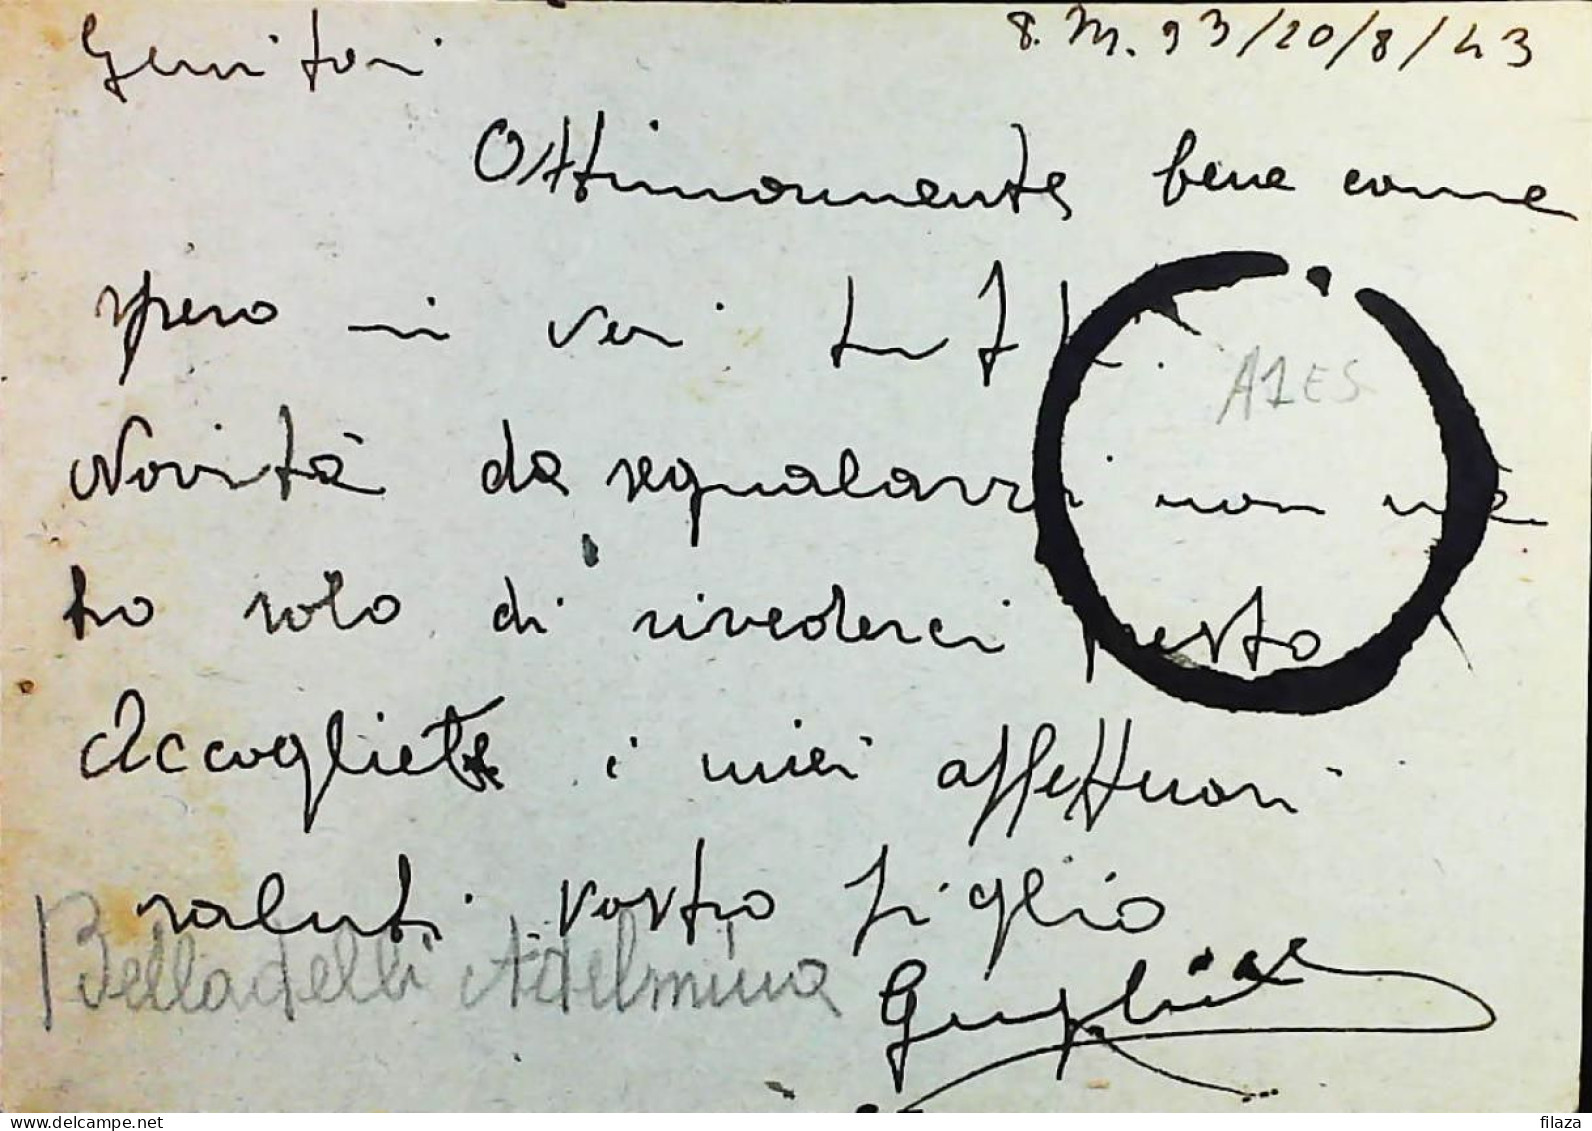 P.M. 93/20/8/43
Genitori
Ottimamente bene come
spero in voi tutti.
Novità da segnalarvi non ve
ne solo di rivederci presto
Accogliete i miei affettuosi
saluti vostro figlio
Belladelli Adelmina
www.delcampe.net
filaza